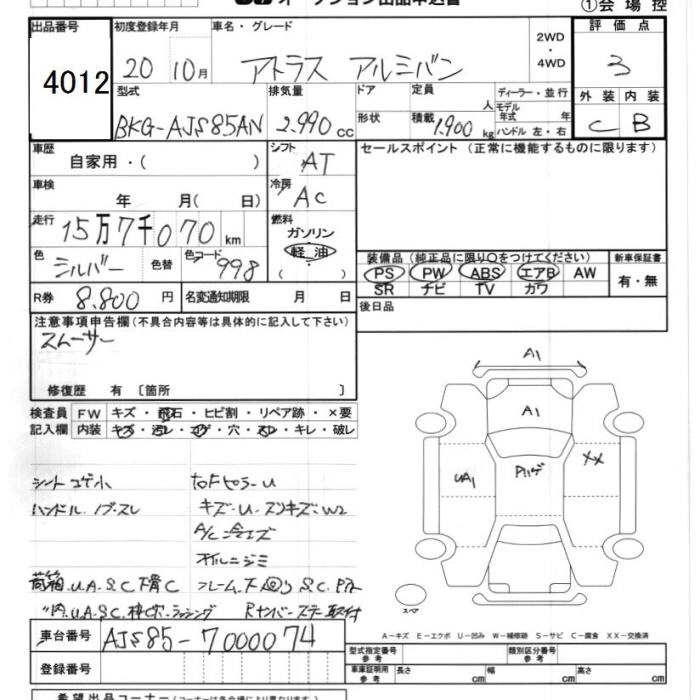 オークション出品申込書
①会場控
出品番号
4012
初度登録年月
20 10月
車名・グレード
アトラス アルミバン
2WD
4WD
評価点
3
外装 内装
C B
型式
BKG-AJS85AN
排気量
2.990 cc
ドア
形状
定員
人
積載
1.900 kg
ディーラー・並行
モデル
年式 年
ハンドル 左・右
車歴
自家用・( )
シフト
AT
セールスポイント (正常に機能するものに限ります)
車検
年 月( 日)
冷房
AC
走行
15万7千070 km
燃料
ガソリン
軽油
( )
色
シルバー
色替
色コード
998
装備品 (純正品に限り○をつけてください)
PS PW ABS エアB AW
SR ナビ TV カワ
新車保証書
有・無
R券 8.800 円
名変通知期限 月 日
後日品
注意事項申告欄 (不具合内容等は具体的に記入して下さい)
スムーサー
修復歴 有 〔箇所 〕
検査員 FW キズ・飛石・ヒビ割・リペア跡・×要
記入欄 内装 キズ・汚レ・コゲ・穴・スレ・キレ・破レ
シートコゲ小
ハンドル、ノブスレ
A/C冷エズ
オイルニジミ
A1
A1
UA1
XX
スペア
A-キズ E-エクボ U-凹み W-補修跡 S-サビ C-腐食 XX-交換済
車台番号 AJS85-7000074
登録番号
型式指定番号
参考
類別区分番号
参考
車庫証明用
参考
長さ cm 幅 cm 高さ cm
希望出品コーナー